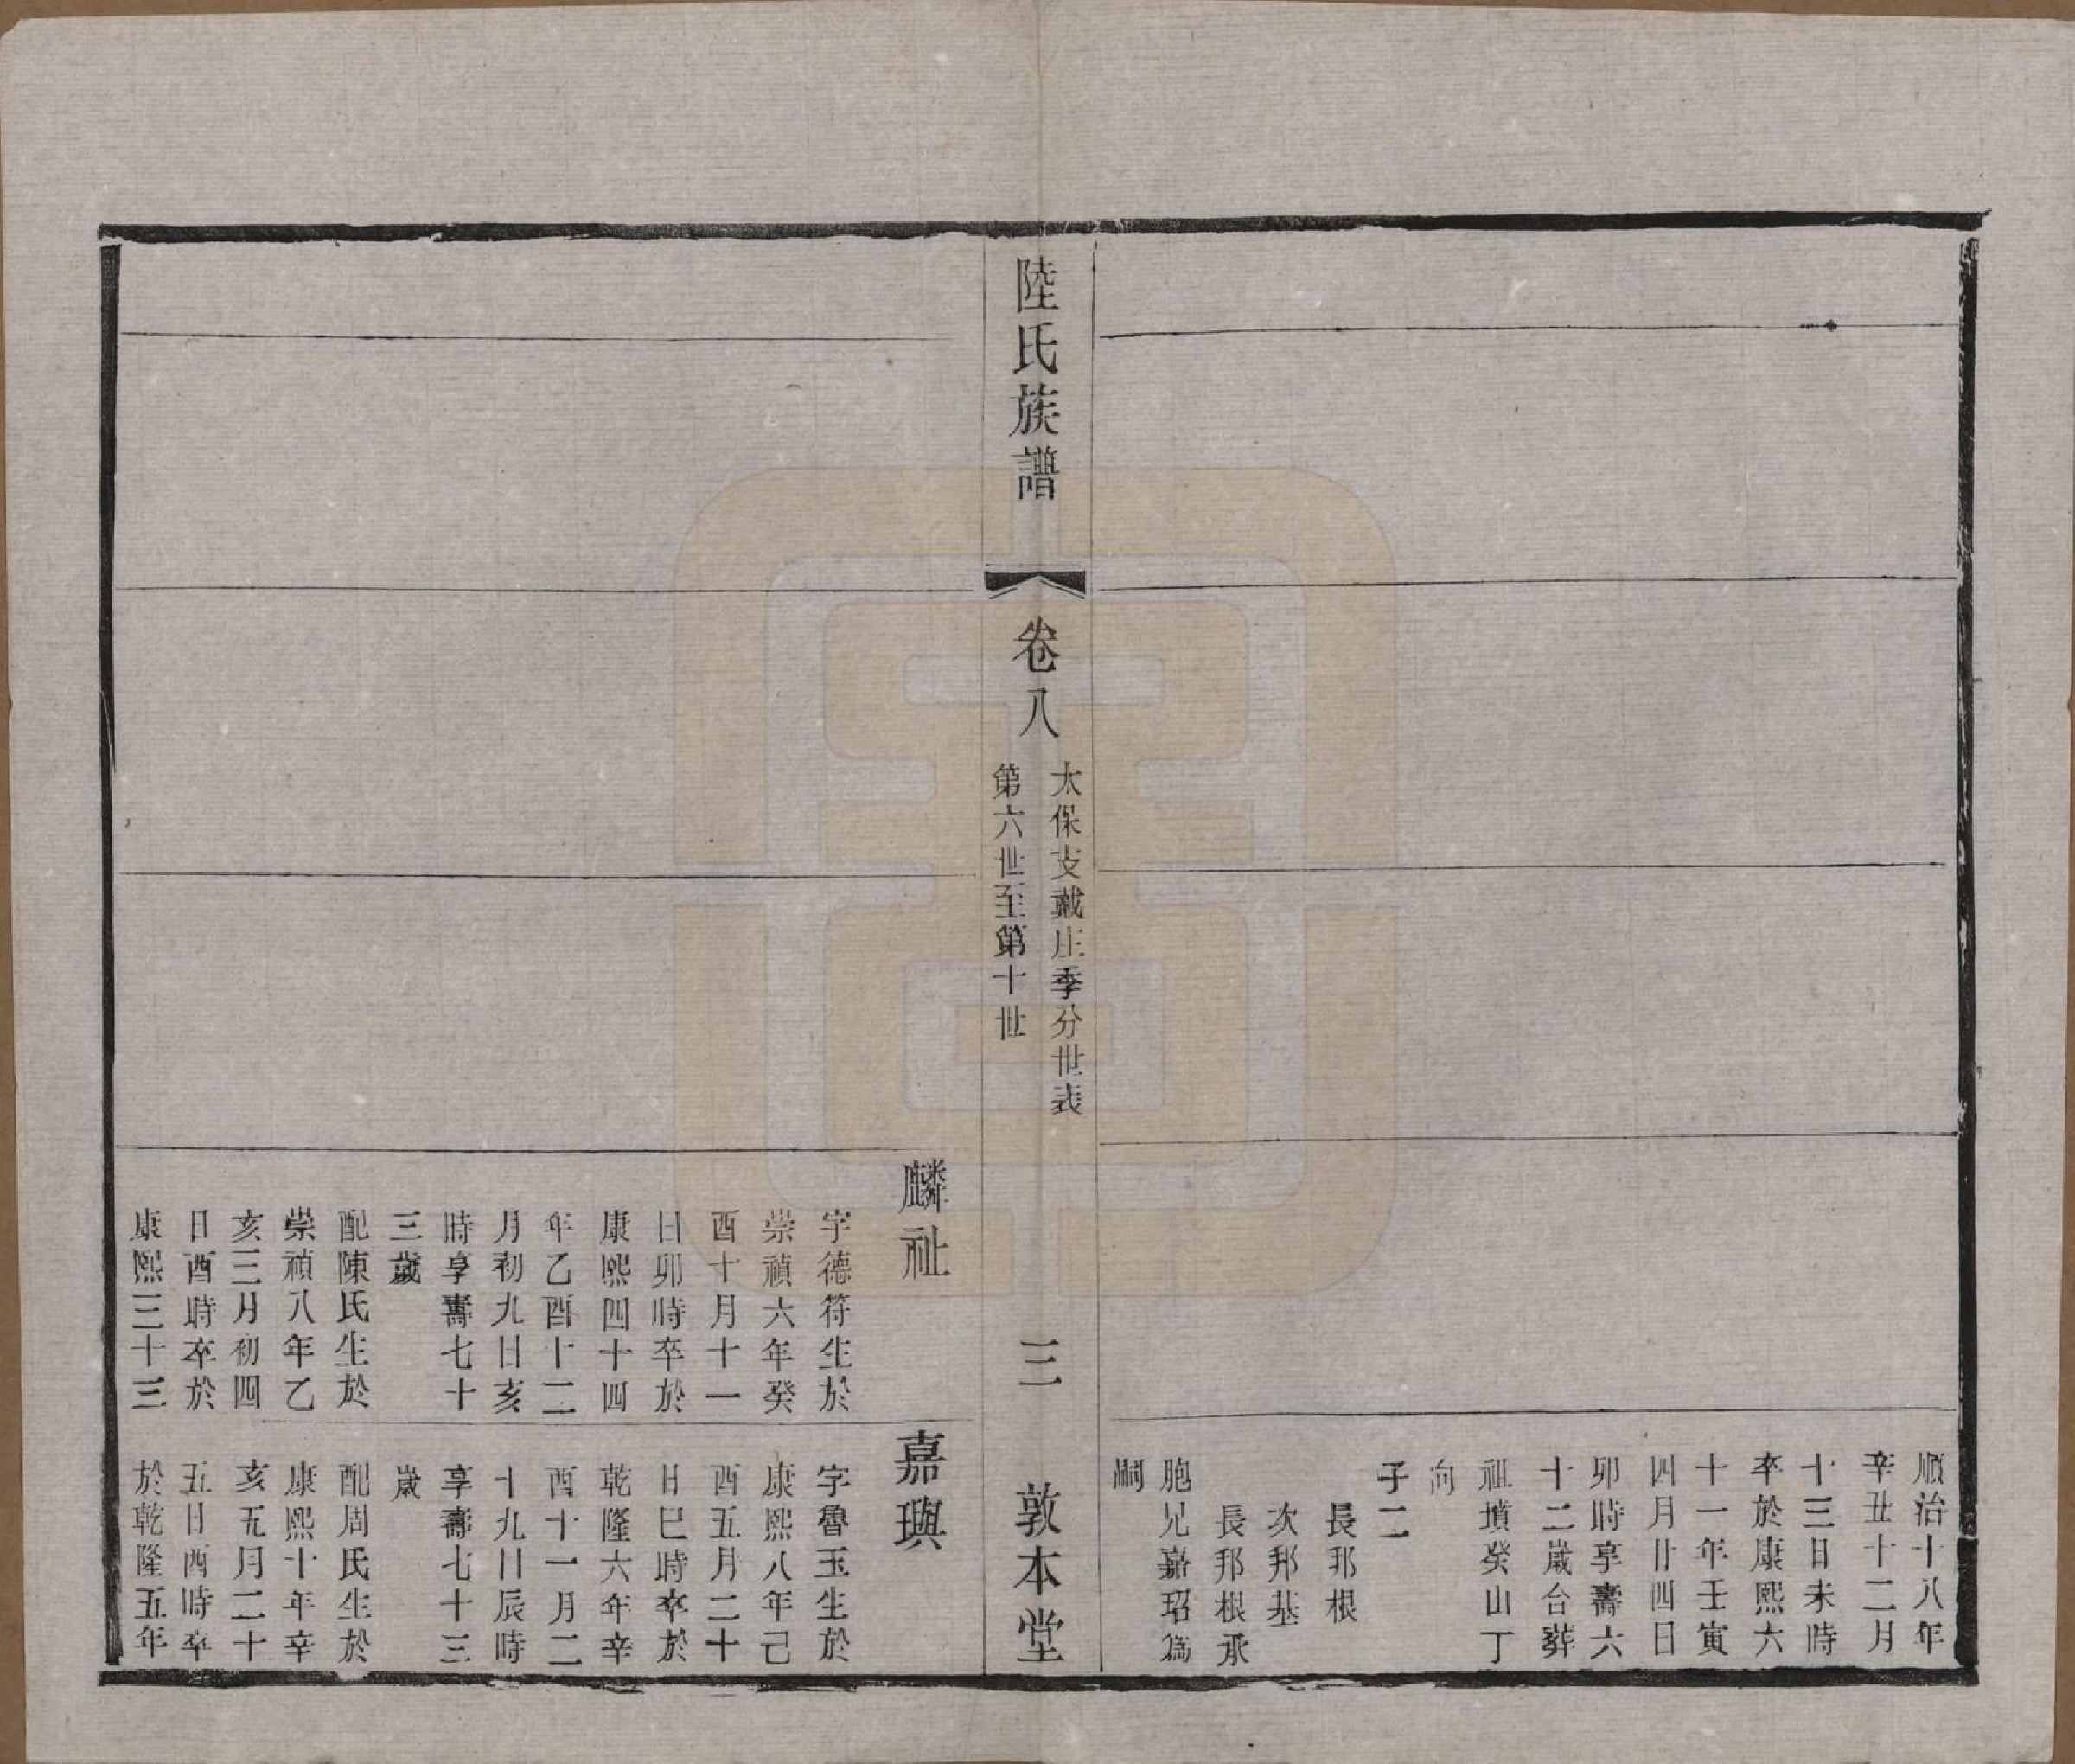 順治十八年
辛丑十二月
十三日未時
卒於康熙六
十一年壬寅
四月廿四日
卯時享壽六
十二歲合葬
祖墳癸山丁
向
子二
長邦根
次邦基
長邦根承
胞兄嘉玿為
嗣
陸氏族譜
卷八
太保支戴庄季分世表
第六世至第十世
三
敦本堂
麟祉
字德符生於
崇禎六年癸
酉十月十一
日卯時卒於
康熙四十四
年乙酉十二
月初九日亥
時享壽七十
三歲
配陳氏生於
崇禎八年乙
亥三月初四
日酉時卒於
康熙三十三
嘉璵
字魯玉生於
康熙八年己
酉五月二十
日巳時卒於
乾隆六年辛
酉十一月二
十九日辰時
享壽七十三
歲
配周氏生於
康熙十年辛
亥五月二十
五日酉時卒
於乾隆五年